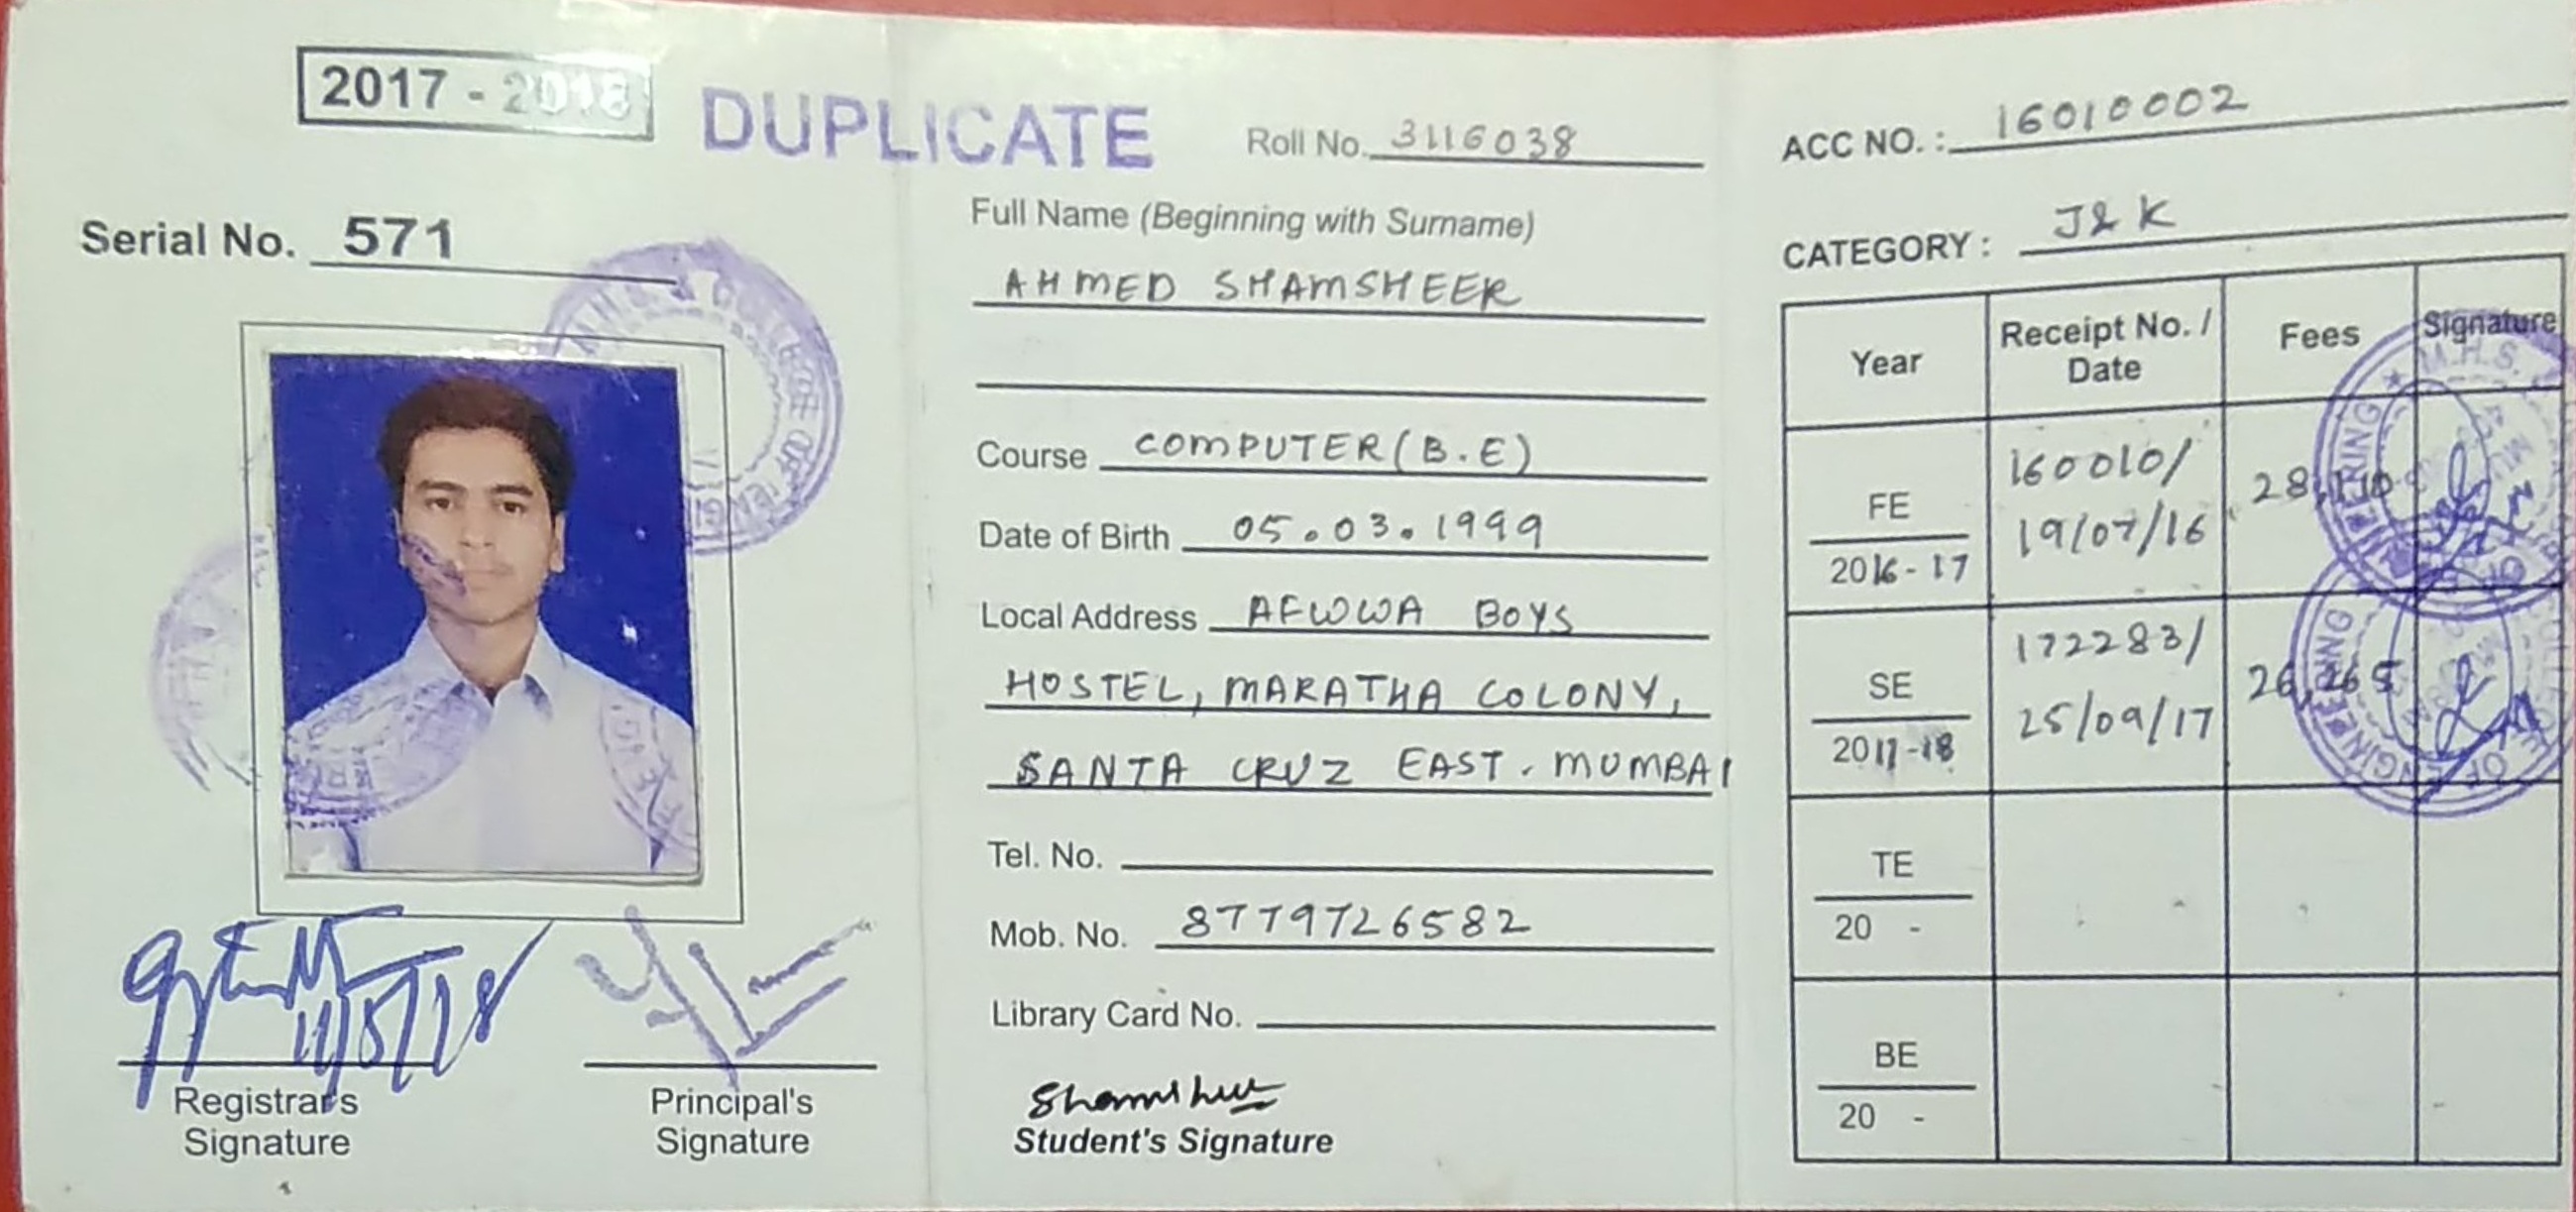 2017 - 2018
DUPLICATE
Serial No. 571
Registrar's
Signature
Principal's
Signature
11/5/18
Roll No. 3116038
Full Name (Beginning with Surname)
AHMED SHAMSHEER
Course COMPUTER (B.E)
Date of Birth 05.03.1999
Local Address AFWWA BOYS
HOSTEL, MARATHA COLONY,
SANTA CRUZ EAST. MUMBAI
Tel. No.
Mob. No. 8779726582
Library Card No.
Student's Signature
ACC NO. : 16010002
CATEGORY : J & K
Year Receipt No. / Date Fees Signature
FE 2016 - 17 160010/ 19/07/16 28,110
SE 2017 - 18 172283/ 25/09/17 26,265
TE 20 -
BE 20 -